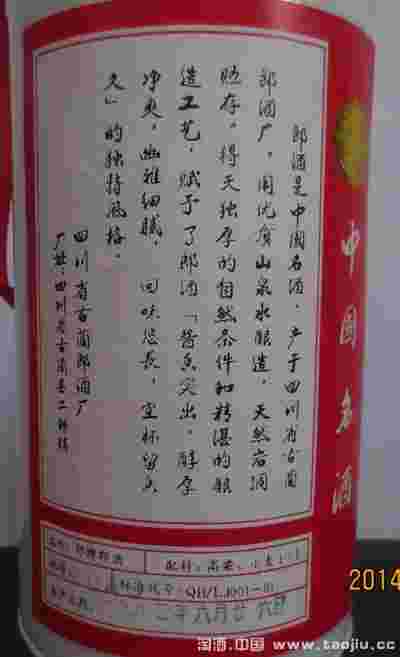 郎酒是中国名酒，产于四川省古蔺
郎酒厂，用优质山泉水酿造，天然岩洞
贮存。得天独厚的自然条件和精湛的酿
造工艺，赋予了郎酒「酱香突出，醇厚
净爽，幽雅细腻，回味悠长，空杯留香
久」的独特风格。
四川省古蔺郎酒厂
厂址：四川省古蔺县二郎镇
中国名酒
配料：高粱、小麦
标准代号：QH/LJ001-91
年六月廿六日
2014
淘酒.中国 www.taojiu.cc